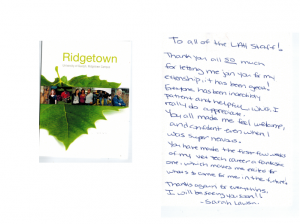 Ridgetown
To all of the LAH Staff!
Thank you all so much
for letting me join you for my
externship, it has been great!
Everyone has been incredibly
patient and helpful, which I
really do appreciate.
You all made me feel welcome,
and confident even when I
was super nervous.
You have made the first few weeks
of my vet tech career a fantastic
one, which makes me excited for
what's to come for me in the future.
Thanks again for everything,
I will be seeing you soon!
- Sarah